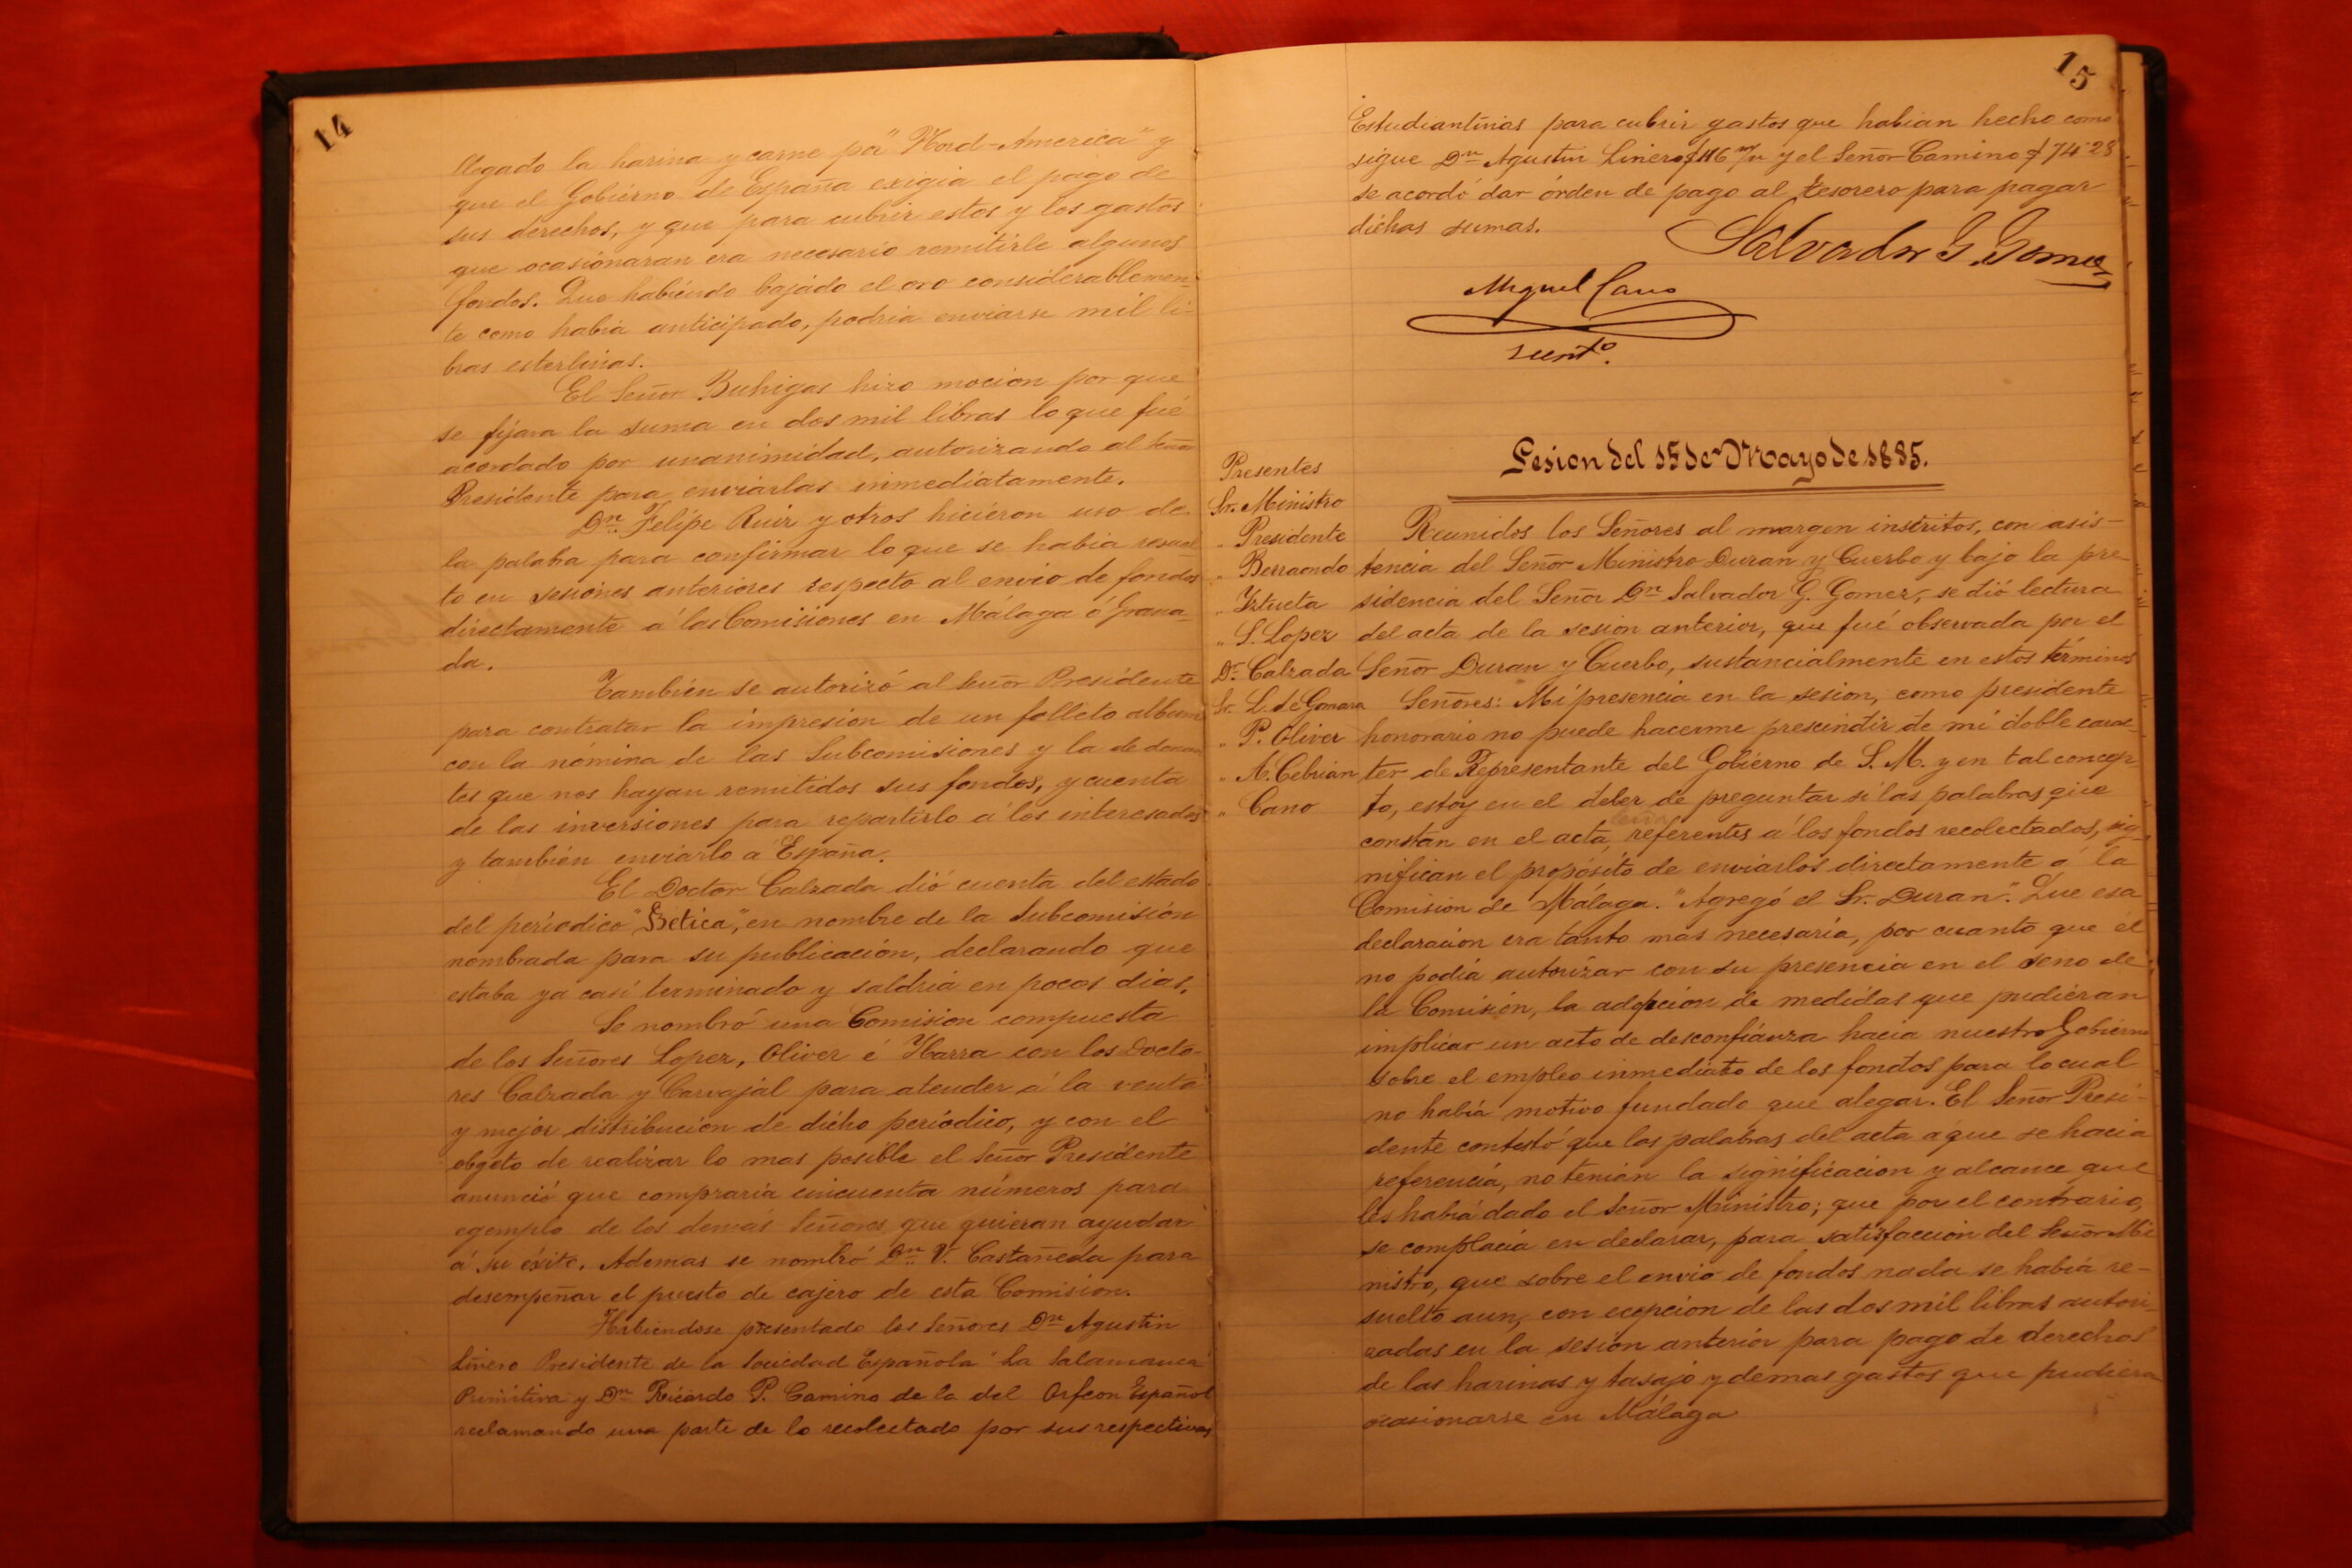 14
llegado la harina y carne por "Nord-America" y
que el Gobierno de España exigia el pago de
sus derechos, y que para cubrir estos y los gastos
que ocasionaran era necesario remitirle algunos
fondos. Que habiendo bajado el oro considerablemen-
te como habia anticipado, podria enviarse mil li-
bras esterlinas.
El Señor Buhigas hizo mocion por que
se fijara la suma en dos mil libras lo que fué
acordado por unanimidad, autorizando al Señor
Presidente para enviarlas inmediatamente.
Dn Felipe Ruiz y otros hicieron uso de
la palaba para confirmar lo que se habia resuel
to en sesiones anteriores respecto al envio de fondos
directamente á las Comisiones en Málaga ó Grana-
da.
También se autorizó al Señor Presidente
para contratar la impresion de un folleto album
con la nómina de las Subcomisiones y la de donan
tes que nos hayan remitidos sus fondos, y cuenta
de las inversiones para repartirlo á los interesados
y tambien enviarlo á España.
El Doctor Calzada dió cuenta del estado
del periodico "Betica", en nombre de la Subcomisión
nombrada para su publicación, declarando que
estaba ya casi terminado y saldria en pocos dias.
Se nombró una Comision compuesta
de los Señores Lopez, Oliver é Ybarra con los Docto-
res Calzada y Carvajal para atender á la venta
y mejor distribucion de dicho periódico, y con el
obgeto de realizar lo mas posible el Señor Presidente
anunció que compraria cincuenta números para
egemplo de los demás Señores que quieran ayudar
á su éxito. Ademas se nombró Dn V. Castañeda para
desempeñar el puesto de cajero de esta Comision.
Habiendose presentado los Señores Dn Agustin
Liñero Presidente de la Sociedad Española "La Salamanca
Primitiva y Dn Ricardo P. Camino de la del Orfeon Español
reclamando una parte de lo recolectado por sus respectivas
15
Estudiantinas para cubrir gastos que habian hecho como
sigue Dn Agustin Liñero $ 116 m/n y el Señor Camino $ 74 28
se acordó dar órden de pago al tesorero para pagar
dichas sumas.
Salvador G. Gomez
Miguel Cano
Sesion del 15 de Mayo de 1885.
Presentes
Sr. Ministro
" Presidente
" Berraondo
" Yztueta
" S. Lopez
Dr Calzada
Sr. L. de Gomara
" P. Oliver
" A. Cebrian
" Cano
Reunidos los Señores al margen inscritos, con asis-
tencia del Señor Ministro Duran y Cuerbo y bajo la pre-
sidencia del Señor Dn Salvador G. Gomez, se dió lectura
del acta de la sesion anterior, que fué observada por el
Señor Duran y Cuerbo, sustancialmente en estos términos
Señores: "Mi presencia en la sesion, como presidente
honorario no puede hacerme prescindir de mi doble carac-
ter de Representante del Gobierno de S. M. y en tal concep-
to, estoy en el deber de preguntar si las palabras que
constan en el acta, referentes á los fondos recolectados, sig-
nifican el propósito de enviarlos directamente á la
Comision de Málaga." Agregó el Sr. Duran". Que esa
declaracion era tanto mas necesaria, por cuanto que él
no podia autorizar con su presencia en el seno de
la Comisión, la adopcion de medidas que pudieran
implicar un acto de desconfianza hacia nuestro Gobierno
sobre el empleo inmediato de los fondos para lo cual
no habia motivo fundado que alegar. El Señor Presi-
dente contestó que las palabras del acta á que se hacia
referencia, no tenian la significacion y alcance que
les habia dado el Señor Ministro; que por el contrario,
se complacia en declarar, para satisfaccion del Señor Mi
nistro, que sobre el envio de fondos nada se habia re-
suelto aun, con ecepcion de las dos mil libras autori-
zadas en la sesion anterior para pago de derechos
de las harinas y tasajo y demas gastos que pudiera
ocasionarse en Málaga